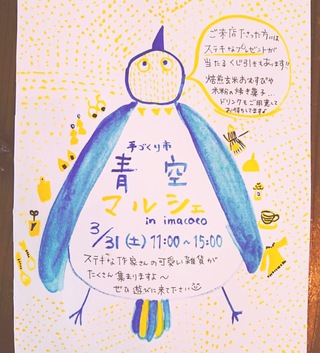 ご来店下さった方には
ステキなプレゼントが
当たるくじ引きもあります!!
焙煎玄米おむすびや
米粉の焼き菓子…
ドリンクもご用意して
お待ちしてます♪
手づくり市
青空
マルシェ
in imacoco
3/31(土) 11:00~15:00
ステキな作家さんの可愛い雑貨が
たくさん集まりますよ～
ぜひ遊びに来て下さい